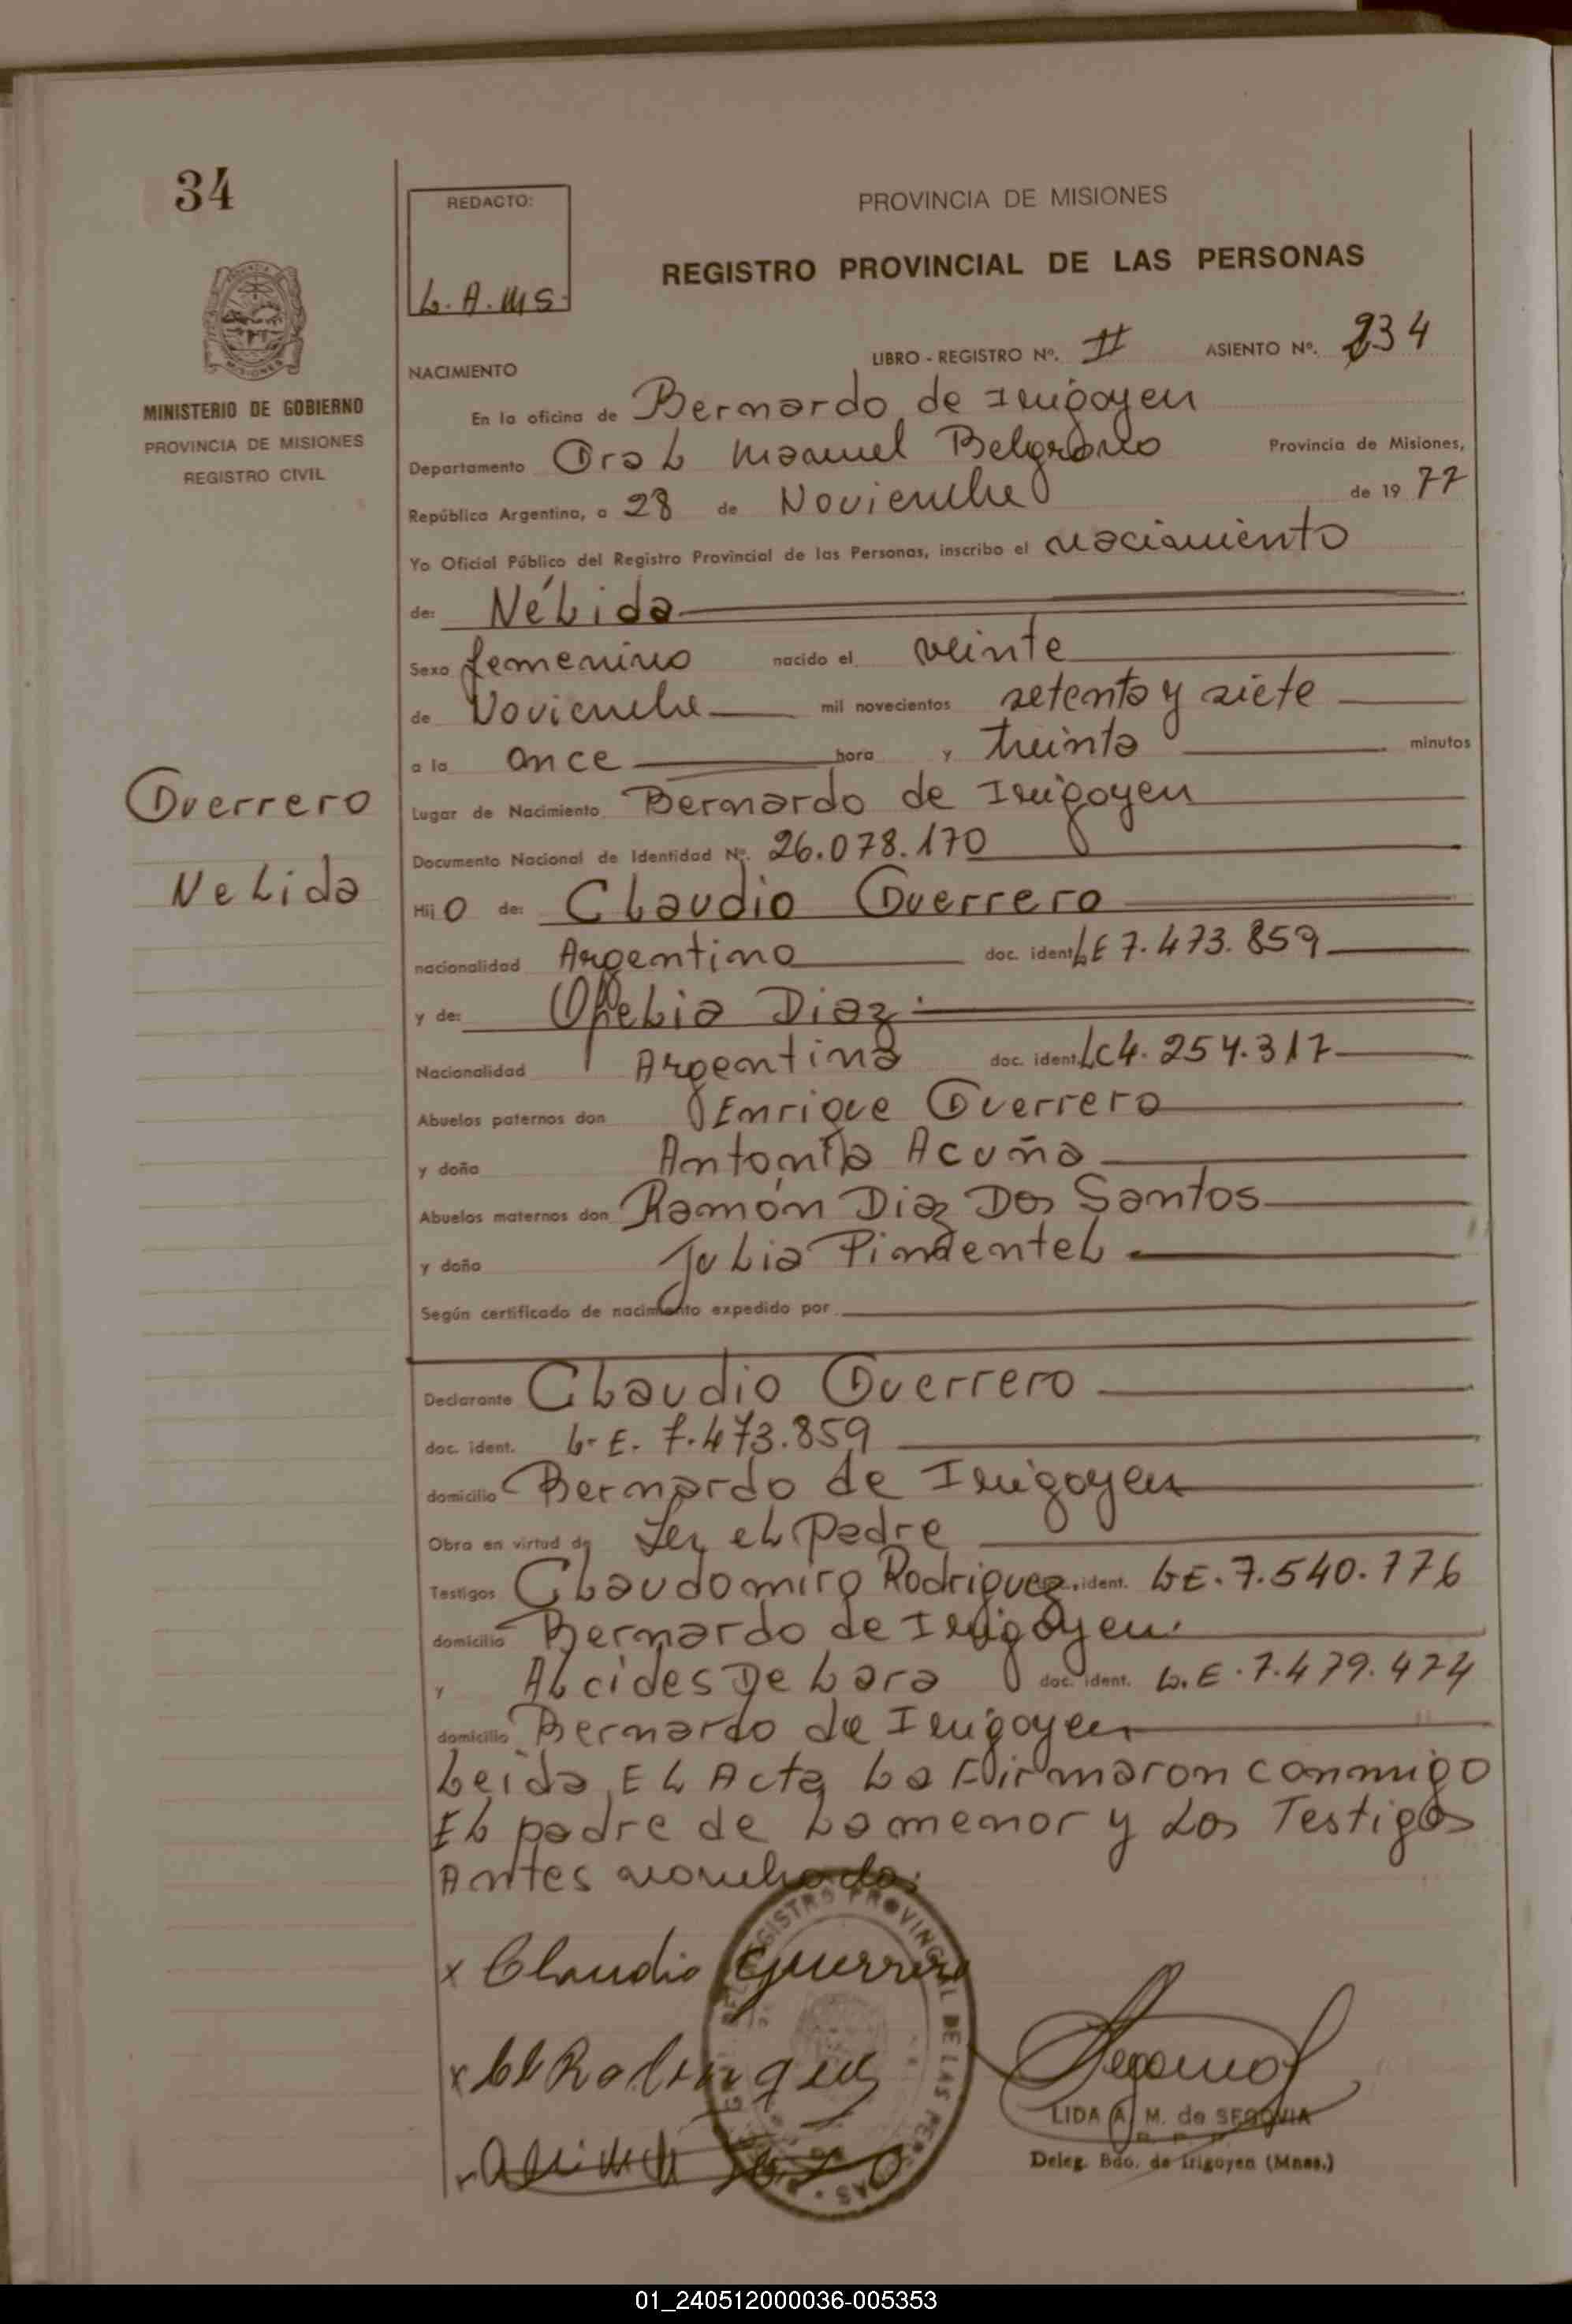 34
REDACTO:
L. A. MS.
PROVINCIA DE MISIONES
REGISTRO PROVINCIAL DE LAS PERSONAS
MINISTERIO DE GOBIERNO
PROVINCIA DE MISIONES
REGISTRO CIVIL
LIBRO - REGISTRO Nº. II ASIENTO Nº. 234
NACIMIENTO
En la oficina de Bernardo de Irigoyen
Departamento Gral Manuel Belgrano Provincia de Misiones,
República Argentina, a 28 de Noviembre de 1977
Yo Oficial Público del Registro Provincial de las Personas, inscribo el nacimiento
de: Nélida
Sexo femenino nacido el veinte
de Noviembre mil novecientos setenta y siete
a la once hora y treinta minutos
Guerrero
Nelida
Lugar de Nacimiento Bernardo de Irigoyen
Documento Nacional de Identidad Nº. 26.078.170
Hijo de: Claudio Guerrero
nacionalidad Argentino doc. ident. LE 7.473.859
y de: Ofelia Diaz
Nacionalidad Argentina doc. ident. LC 4.254.317
Abuelos paternos don Enrique Guerrero
y doña Antonia Acuña
Abuelos maternos don Ramón Diaz Dos Santos
y doña Julia Pimentel
Según certificado de nacimiento expedido por
Declarante Claudio Guerrero
doc. ident. L. E. 7.473.859
domicilio Bernardo de Irigoyen
Obra en virtud de Ser el Padre
Testigos Claudomiro Rodriguez ident. LE. 7.540.776
domicilio Bernardo de Irigoyen.
y Alcides De Lara doc. ident. L.E. 7.479.474
domicilio Bernardo de Irigoyen
Leida El Acta La Firmaron conmigo
El padre de La menor y Los Testigos
Antes nombrados
x Claudio Guerrero
x Cl Rodriguez
REGISTRO PROVINCIAL DE LAS PERSONAS
LIDA A. M. de SEGOVIA
Deleg. Bdo. de Irigoyen (Mnes.)
01_240512000036-005353